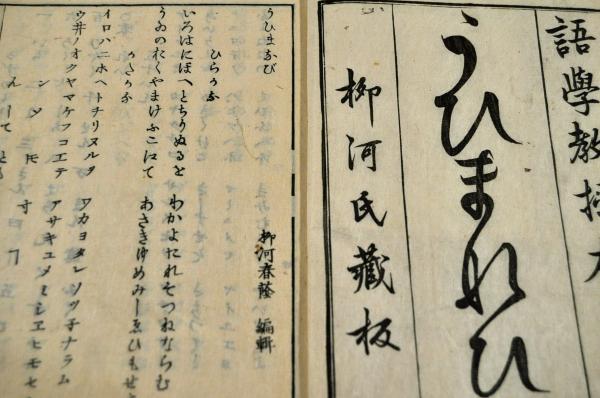 語學教授
うひまなひ
柳河氏藏板
うひまなび
柳河春蔭 編輯
ひらかな
いろはにほへとちりぬるを わかよたれそつねならむ
うゐのおくやまけふこえて あさきゆめみしゑひもせ
かたかな
イロハニホヘトチリヌルヲ ワカヨタレソツ子ナラム
ウ井ノオクヤマケフコエテ アサキユメミシヱヒモセ